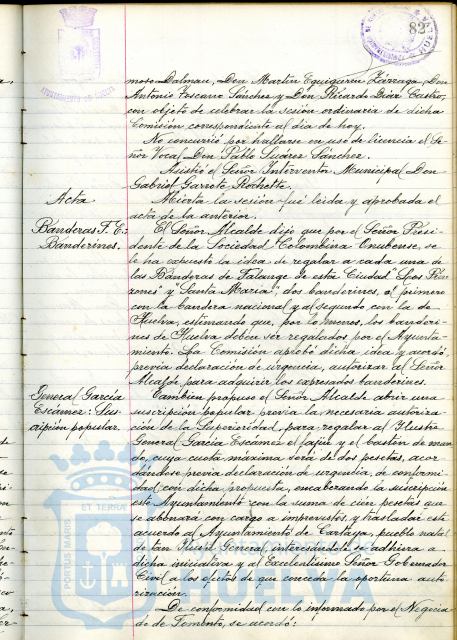 82
AYUNTAMIENTO DE HUELVA
moso Dalmau, Don Martín Eguiguren Lázaga, Don
Antonio Toscano Sánchez y Don Ricardo Díaz Castro,
con objeto de celebrar la sesión ordinaria de dicha
Comisión correspondiente al día de hoy.
No concurrió por hallarse en uso de licencia el Se-
ñor Vocal Don Pablo Suárez Sánchez.
Asistió el Señor Interventor Municipal Don
Gabriel Garrote Rochette.
Acta
Abierta la sesión fué leída y aprobada el
acta de la anterior.
Banderas F. E:
Banderines.
El Señor Alcalde dijo que por el Señor Presi-
dente de la Sociedad Colombina Onubense, se
le ha expuesto la idea de regalar a cada una de
las Banderas de Falange de esta Ciudad "Los Pin-
zones" y "Santa María", dos banderines, al primero
con la bandera nacional y al segundo con la de
Huelva, estimando que, por lo menos, los banderi-
nes de Huelva deben ser regalados por el Ayunta-
miento. La Comisión aprobó dicha idea y acordó,
previa declaración de urgencia, autorizar al Señor
Alcalde para adquirir los expresados banderines.
General García
Escámez: Sus-
cripción popular.
También propuso el Señor Alcalde abrir una
suscripción popular previa la necesaria autoriza-
ción de la Superioridad, para regalar al Ilustre
General García Escámez el fajín y el bastón de man-
do, cuya cuota máxima será de dos pesetas, acor-
dándose previa declaración de urgencia, de conformi-
dad con dicha propuesta, encabezando la suscripción
este Ayuntamiento con la suma de cien pesetas que
se abonará con cargo a imprevistos, y trasladar este
acuerdo al Ayuntamiento de Cartaya, pueblo natal
de tan Ilustre General, interesándole se adhiera a
dicha iniciativa y al Excelentísimo Señor Gobernador
Civil a los efectos de que conceda la oportuna auto-
rización.
De conformidad con lo informado por el Negocia-
do de Fomento, se acordó:
PORTUS MARIS ET TERRAE
HUELVA